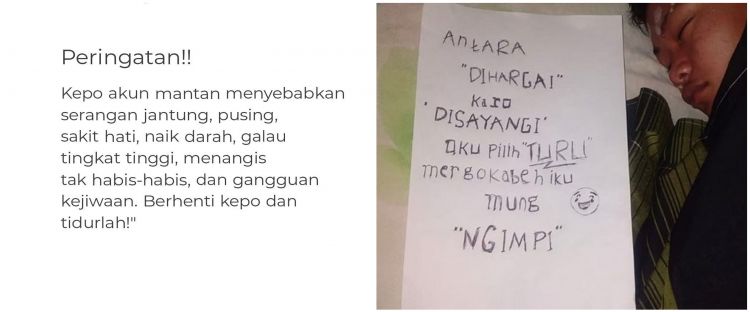 Peringatan!!
Kepo akun mantan menyebabkan
serangan jantung, pusing,
sakit hati, naik darah, galau
tingkat tinggi, menangis
tak habis-habis, dan gangguan
kejiwaan. Berhenti kepo dan
tidurlah!"
AntARA
"DIHARGAI"
Karo
'DISAYANGI'
aku pilih "TURU"
mergo kabeh iku
mung
"NGIMPI"